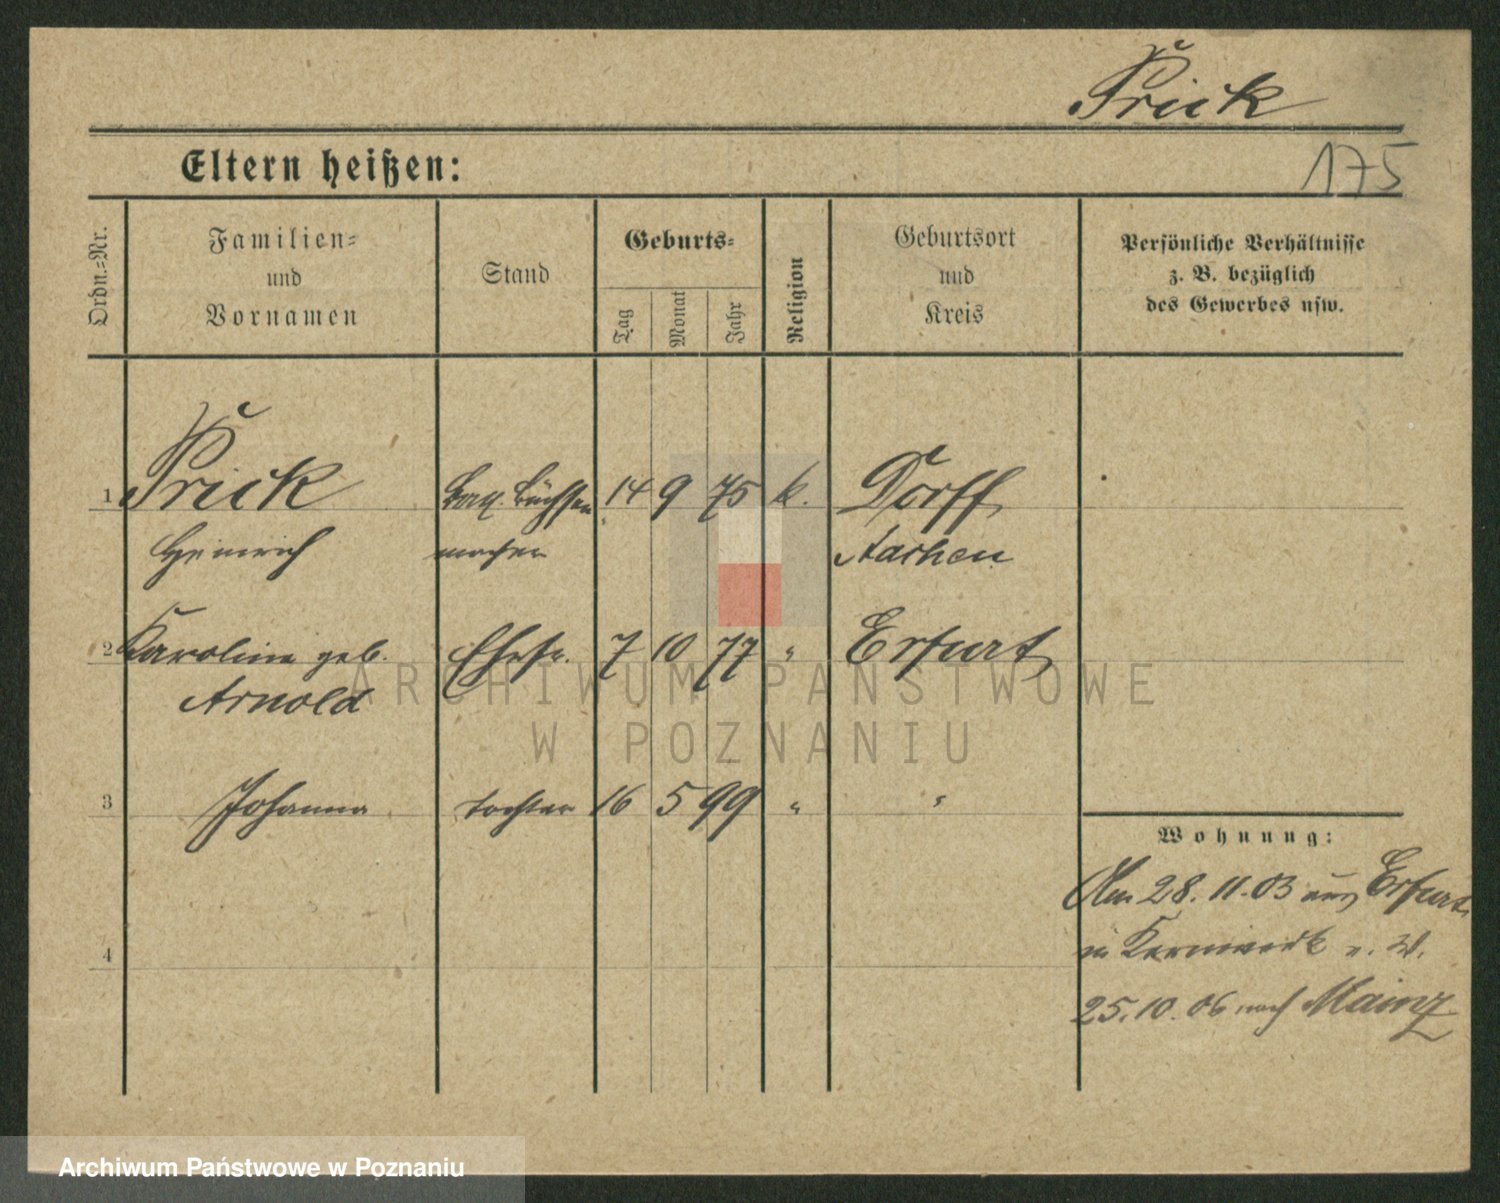 Prick
Eltern heißen:
175
Ordn.-Nr.
Familien-
und
Vornamen
Stand
Geburts-
Tag
Monat
Jahr
Religion
Geburtsort
und
Kreis
Persönliche Verhältnisse
z. B. bezüglich
des Gewerbes usw.
1 Prick Büchsen 14 9 75 k. Dorff
Heinrich macher Aachen
2 Karoline geb. Ehefr. 7 10 77 " Erfurt
Arnold
3 Johanna Tochter 16 5 99 " "
Wohnung:
Am 28. 11. 03 aus Erfurt
4
in Kernwerk
25. 10. 06 nach Mainz
ARCHIWUM PAŃSTWOWE
W POZNANIU
Archiwum Państwowe w Poznaniu